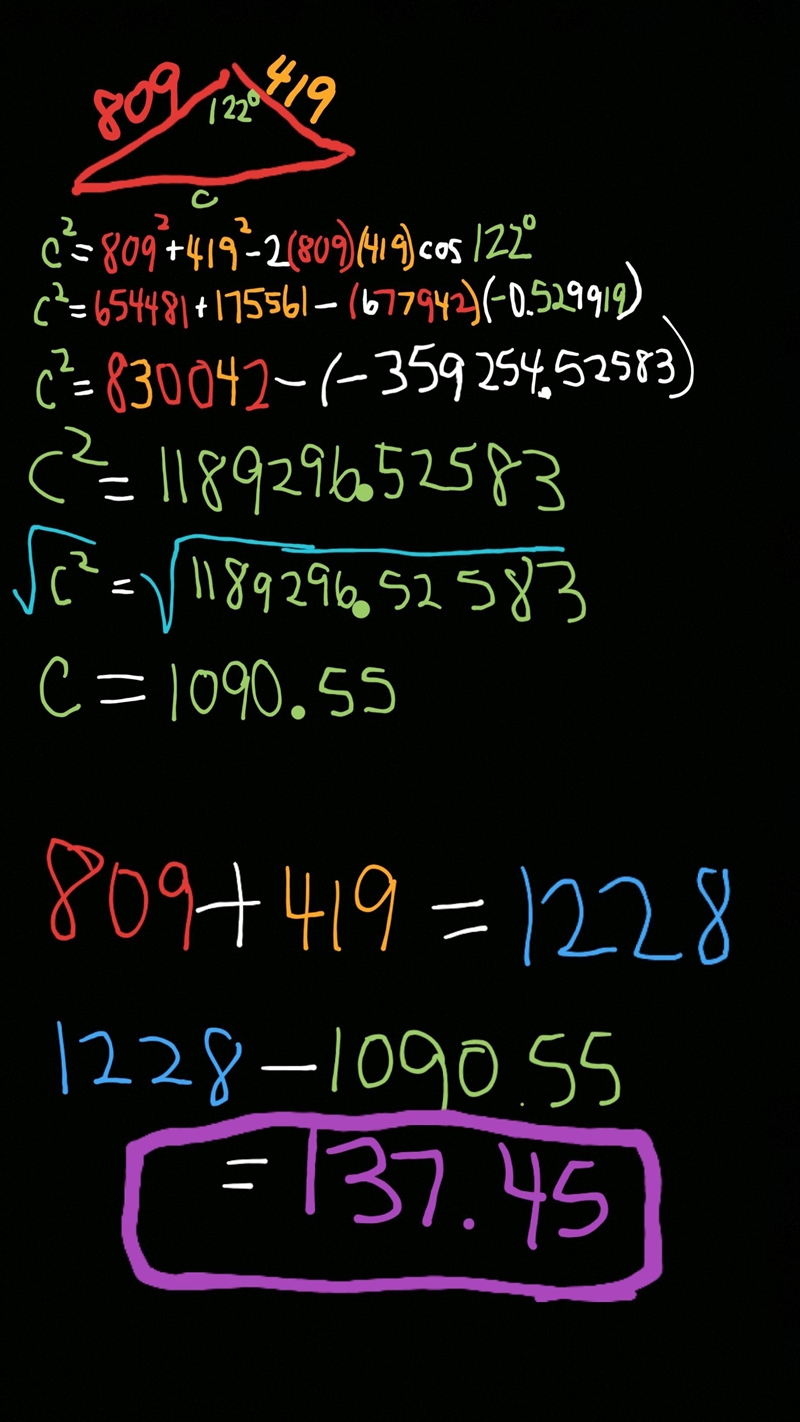 809 419
122°
c
c²=809²+419²-2(809)(419)cos 122°
c²=654481+175561-(677942)(-0.529919)
c²=830042-(-359254.52583)
c²=1189296.52583
√c²=√1189296.52583
c=1090.55
809+419=1228
1228-1090.55
=137.45